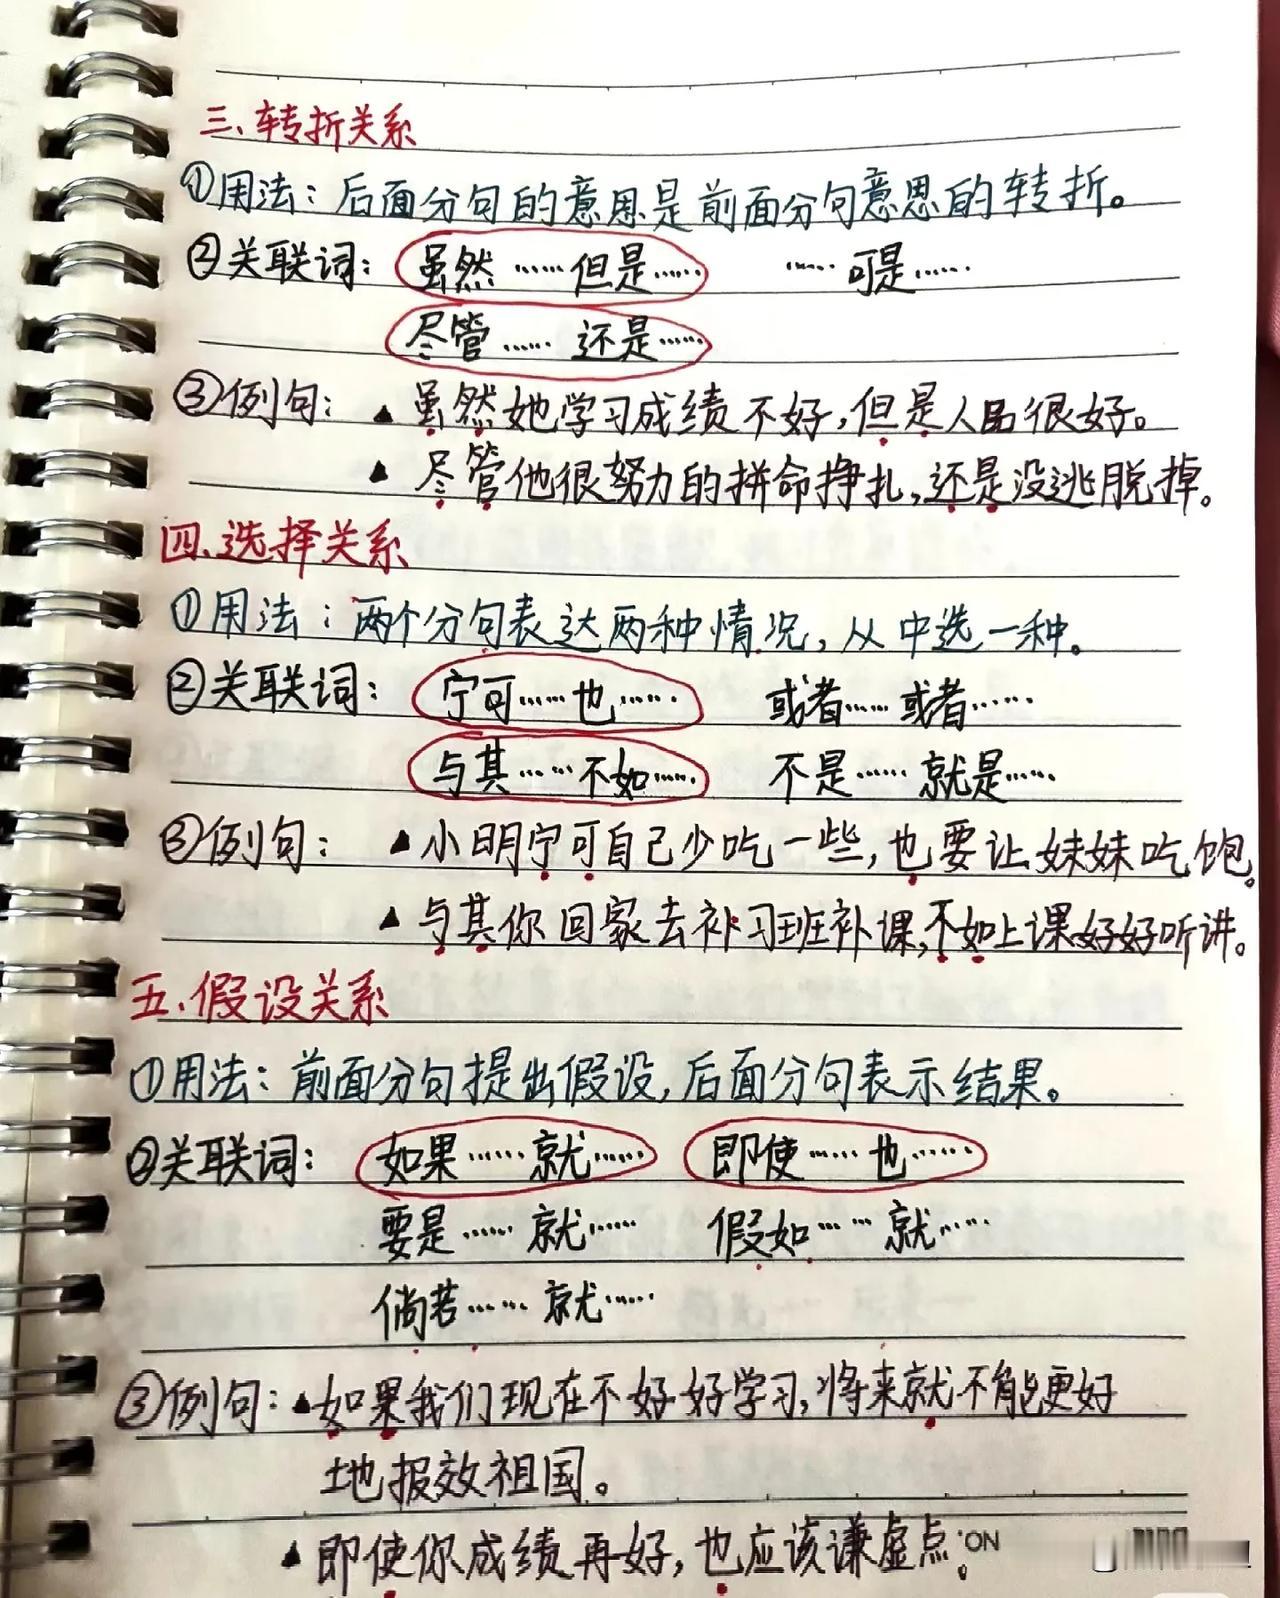 三、转折关系
①用法：后面分句的意思是前面分句意思的转折。
②关联词：虽然……但是…… ……可是……
尽管……还是……
③例句：▲虽然她学习成绩不好，但是人品很好。
▲尽管他很努力的拼命挣扎，还是没逃脱掉。
四、选择关系
①用法：两个分句表达两种情况，从中选一种。
②关联词：宁可……也…… 或者……或者……
与其……不如…… 不是……就是……
③例句：▲小明宁可自己少吃一些，也要让妹妹吃饱。
▲与其你回家去补习班补课，不如上课好好听讲。
五、假设关系
①用法：前面分句提出假设，后面分句表示结果。
②关联词：如果……就…… 即使……也……
要是……就…… 假如……就……
倘若……就……
③例句：▲如果我们现在不好好学习，将来就不能更好
地报效祖国。
▲即使你成绩再好，也应该谦虚点。
ON